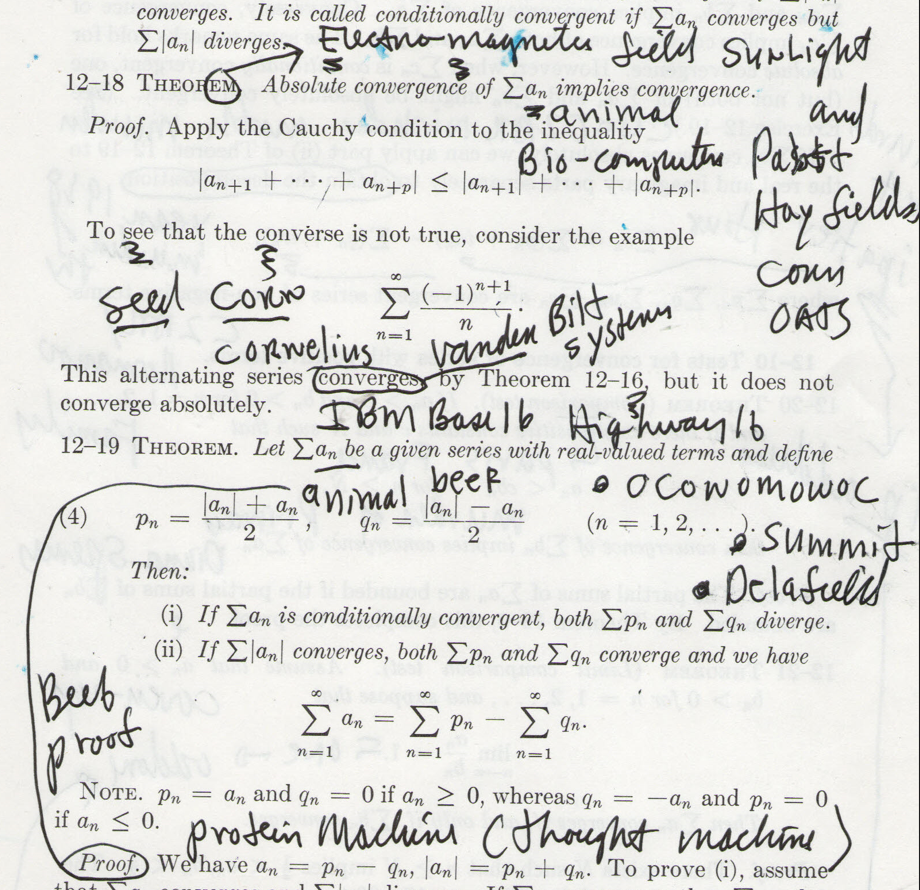 converges. It is called conditionally convergent if ∑aₙ converges but
∑|aₙ| diverges. Electro magnetic field sunlight
12–18 THEOREM Absolute convergence of ∑aₙ implies convergence.
animal and
Proof. Apply the Cauchy condition to the inequality
Bio-computer
|aₙ₊₁ + · · · + aₙ₊ₚ| ≤ |aₙ₊₁| + · · · + |aₙ₊ₚ|.
Hay fields
To see that the converse is not true, consider the example
seed corn
∑ₙ₌₁^∞ (−1)ⁿ⁺¹/n.
Corn
OATS
Cornelius vanden Bilt
systems
This alternating series converges, by Theorem 12–16, but it does not
converge absolutely.
IBM Base 16 Highway 16
12–19 THEOREM. Let ∑aₙ be a given series with real-valued terms and define
animal beef
• Oconomowoc
(4) pₙ = (|aₙ| + aₙ)/2 qₙ = (|aₙ| − aₙ)/2 (n = 1, 2, . . . ).
• Summit
• Delafield
Then:
(i) If ∑aₙ is conditionally convergent, both ∑pₙ and ∑qₙ diverge.
(ii) If ∑|aₙ| converges, both ∑pₙ and ∑qₙ converge and we have
Beeb
proof
∑ₙ₌₁^∞ aₙ = ∑ₙ₌₁^∞ pₙ − ∑ₙ₌₁^∞ qₙ.
NOTE. pₙ = aₙ and qₙ = 0 if aₙ ≥ 0, whereas qₙ = −aₙ and pₙ = 0
if aₙ ≤ 0.
protein Machine (thought machine)
Proof. We have aₙ = pₙ − qₙ, |aₙ| = pₙ + qₙ. To prove (i), assume